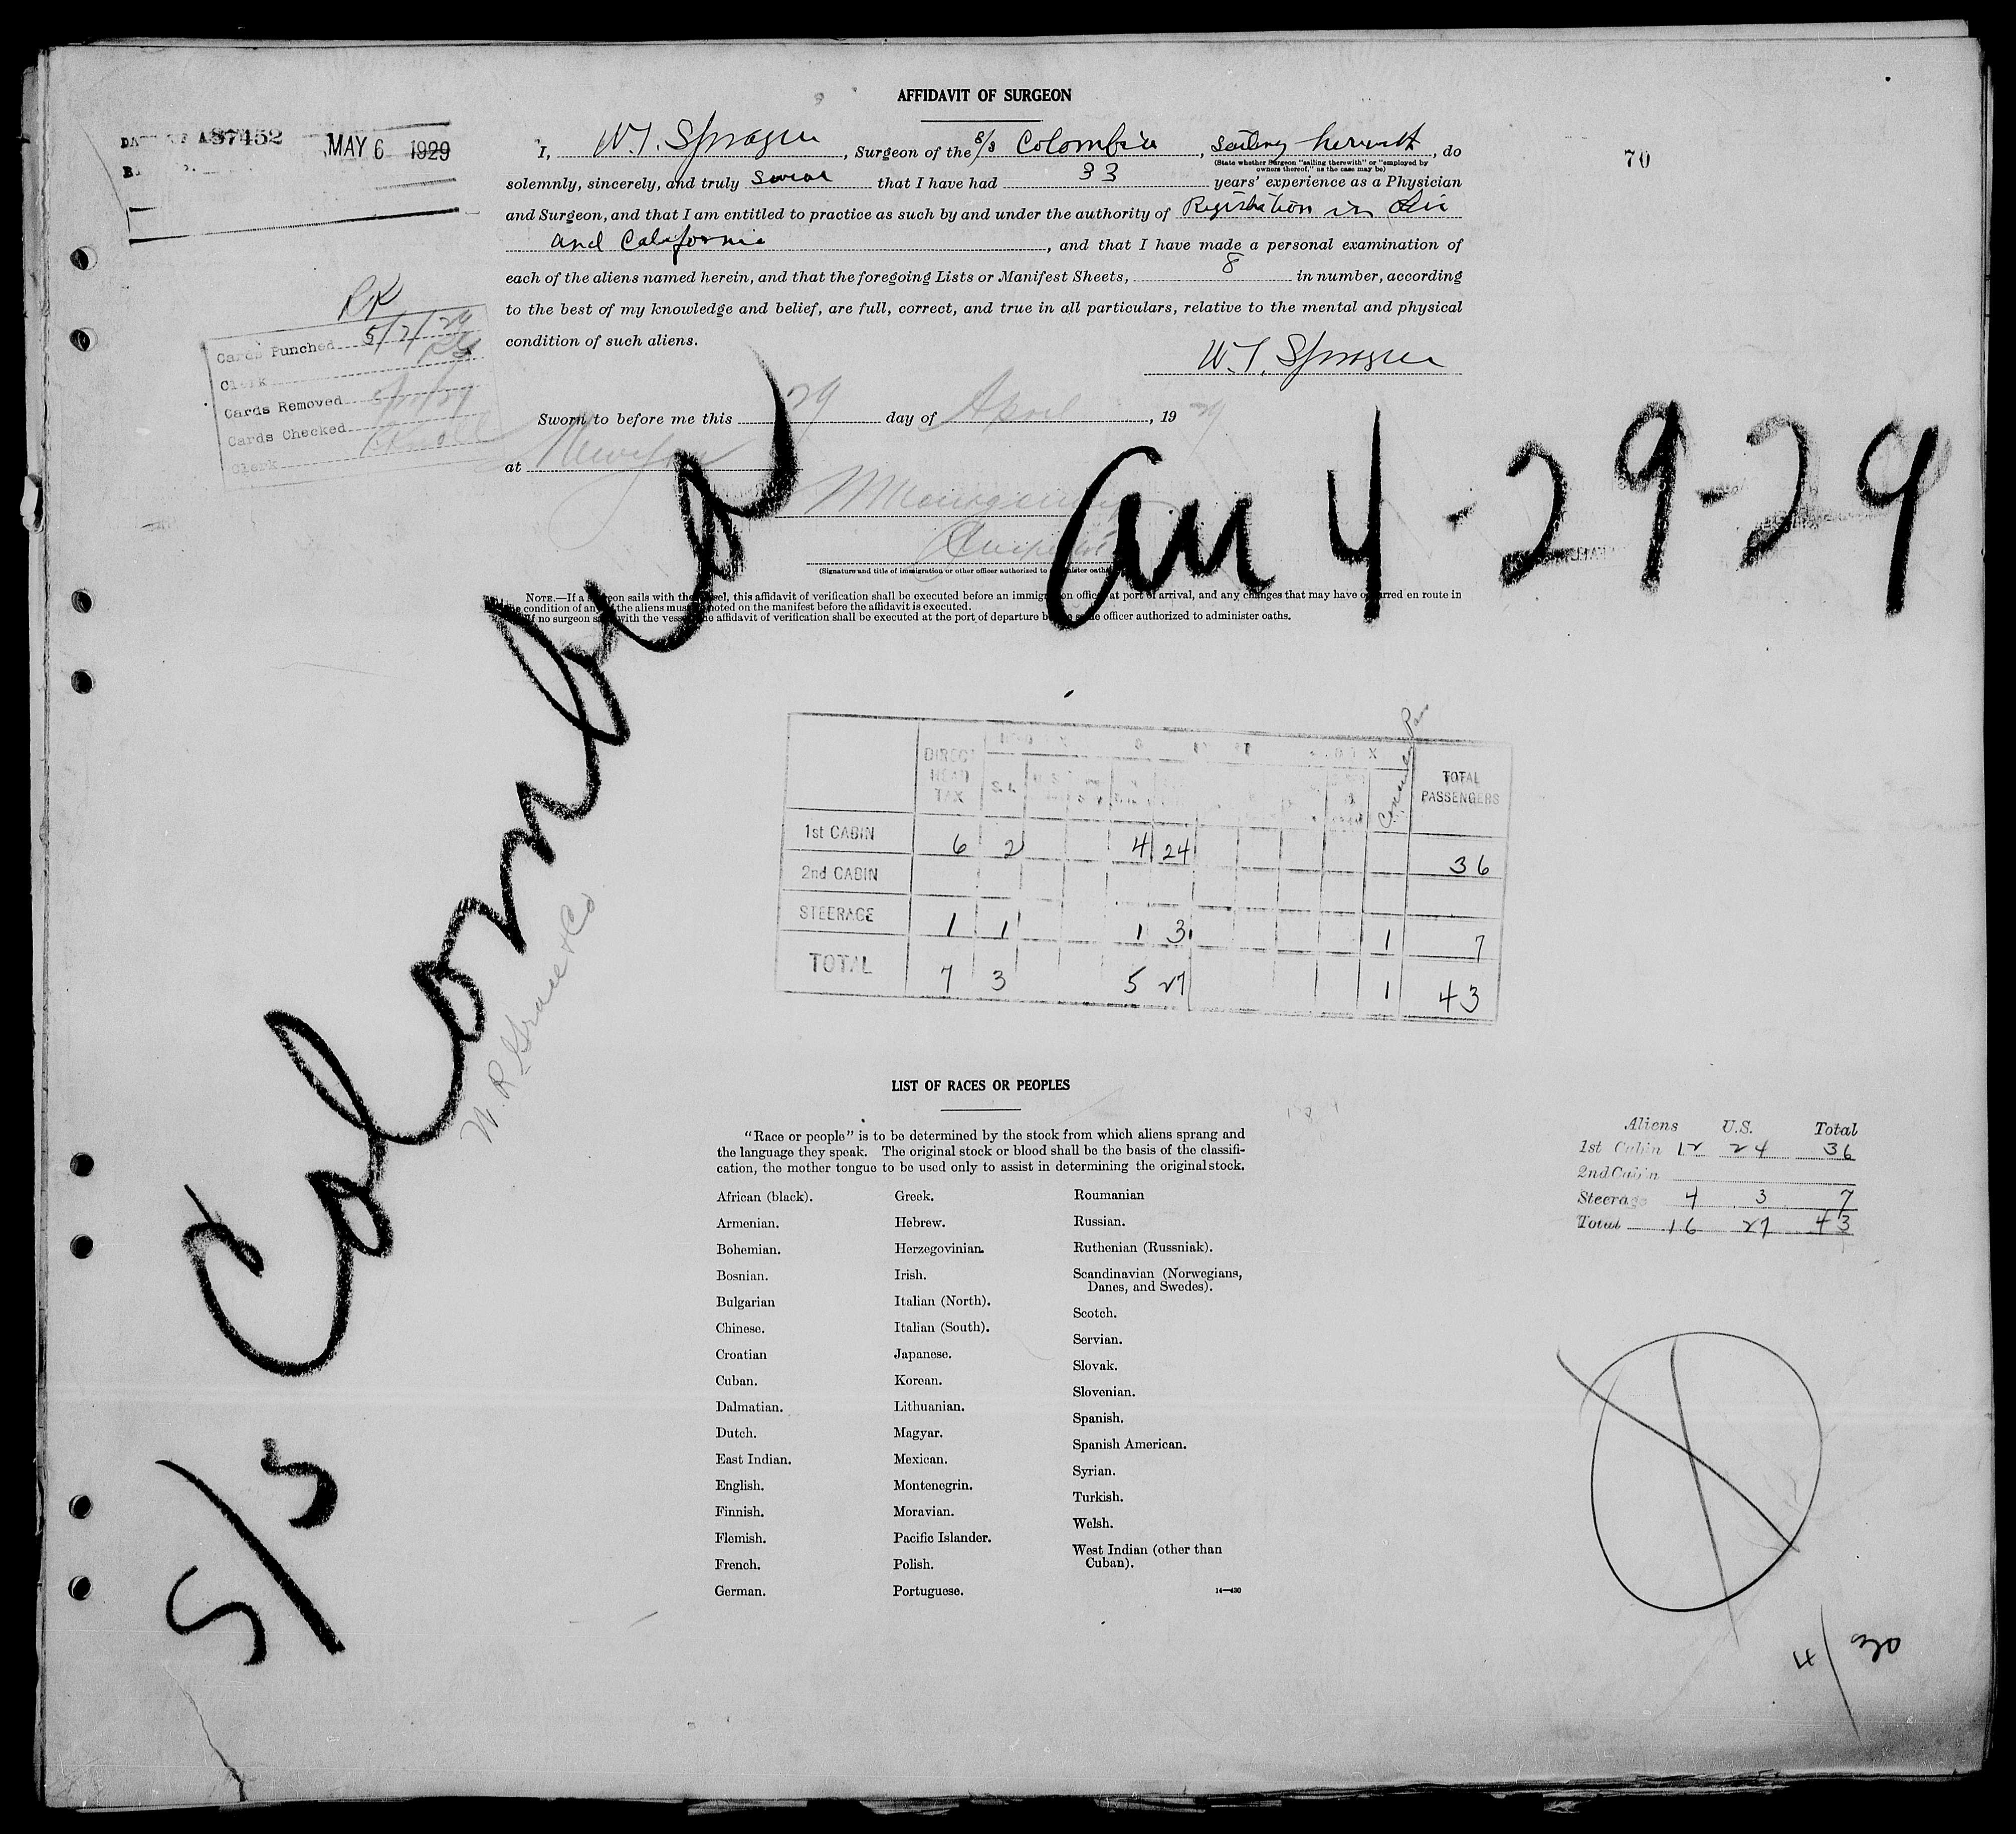 AFFIDAVIT OF SURGEON
87452
MAY 6 1929
70
I, W. T. Sprague, Surgeon of the S/S Colombia, sailing herewith, do
(State whether Surgeon "sailing therewith" or "employed by
owners thereof," as the case may be)
solemnly, sincerely, and truly swear that I have had 33 years' experience as a Physician
and Surgeon, and that I am entitled to practice as such by and under the authority of Registration in
and California, and that I have made a personal examination of
each of the aliens named herein, and that the foregoing Lists or Manifest Sheets, 8 in number, according
to the best of my knowledge and belief, are full, correct, and true in all particulars, relative to the mental and physical
condition of such aliens.
W. T. Sprague
RK
Cards Punched 5/7/29
Clerk
Cards Removed
Cards Checked
Clerk
Sworn to before me this 29 day of April, 19 29
at New York
(Signature and title of immigration or other officer authorized to administer oaths)
an 4-29-29
NOTE.—If a surgeon sails with the vessel, this affidavit of verification shall be executed before an immigration officer at port of arrival, and any changes that may have occurred en route in
the condition of any of the aliens must be noted on the manifest before the affidavit is executed.
If no surgeon sails with the vessel, the affidavit of verification shall be executed at the port of departure before some officer authorized to administer oaths.
S/S Colombia
W. R. Grace & Co
DIRECT HEAD TAX S. L. TOTAL PASSENGERS
1st CABIN 6 2 4 24 36
2nd CABIN
STEERAGE 1 1 1 3 1 7
TOTAL 7 3 5 27 1 43
LIST OF RACES OR PEOPLES
"Race or people" is to be determined by the stock from which aliens sprang and
the language they speak. The original stock or blood shall be the basis of the classifi-
cation, the mother tongue to be used only to assist in determining the original stock.
Aliens U.S. Total
1st Cabin 12 24 36
2nd Cabin
Steerage 4 3 7
Total 16 27 43
African (black). Greek. Roumanian
Armenian. Hebrew. Russian.
Bohemian. Herzegovinian. Ruthenian (Russniak).
Bosnian. Irish. Scandinavian (Norwegians,
Danes, and Swedes).
Bulgarian Italian (North). Scotch.
Chinese. Italian (South). Servian.
Croatian Japanese. Slovak.
Cuban. Korean. Slovenian.
Dalmatian. Lithuanian. Spanish.
Dutch. Magyar. Spanish American.
East Indian. Mexican. Syrian.
English. Montenegrin. Turkish.
Finnish. Moravian. Welsh.
Flemish. Pacific Islander. West Indian (other than
Cuban).
French. Polish.
German. Portuguese.
14—430
4/30